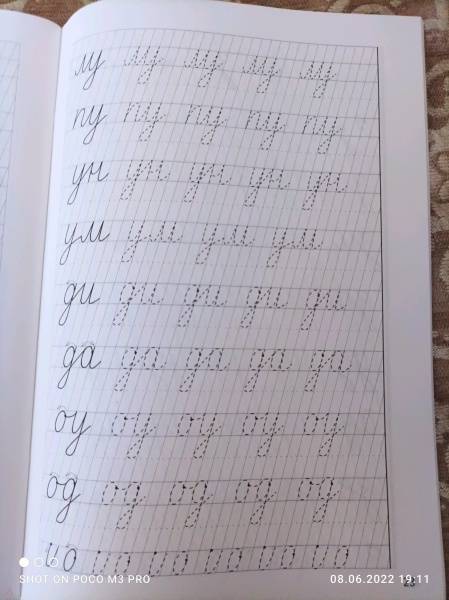 лу лу лу лу лу
пу пу пу пу пу
ун ун ун ун ун
ум ум ум ум
ди ди ди ди ди
да да да да да
оу оу оу оу оу
од од од од од
ио ио ио ио ио ио
SHOT ON POCO M3 PRO
08.06.2022 19:11